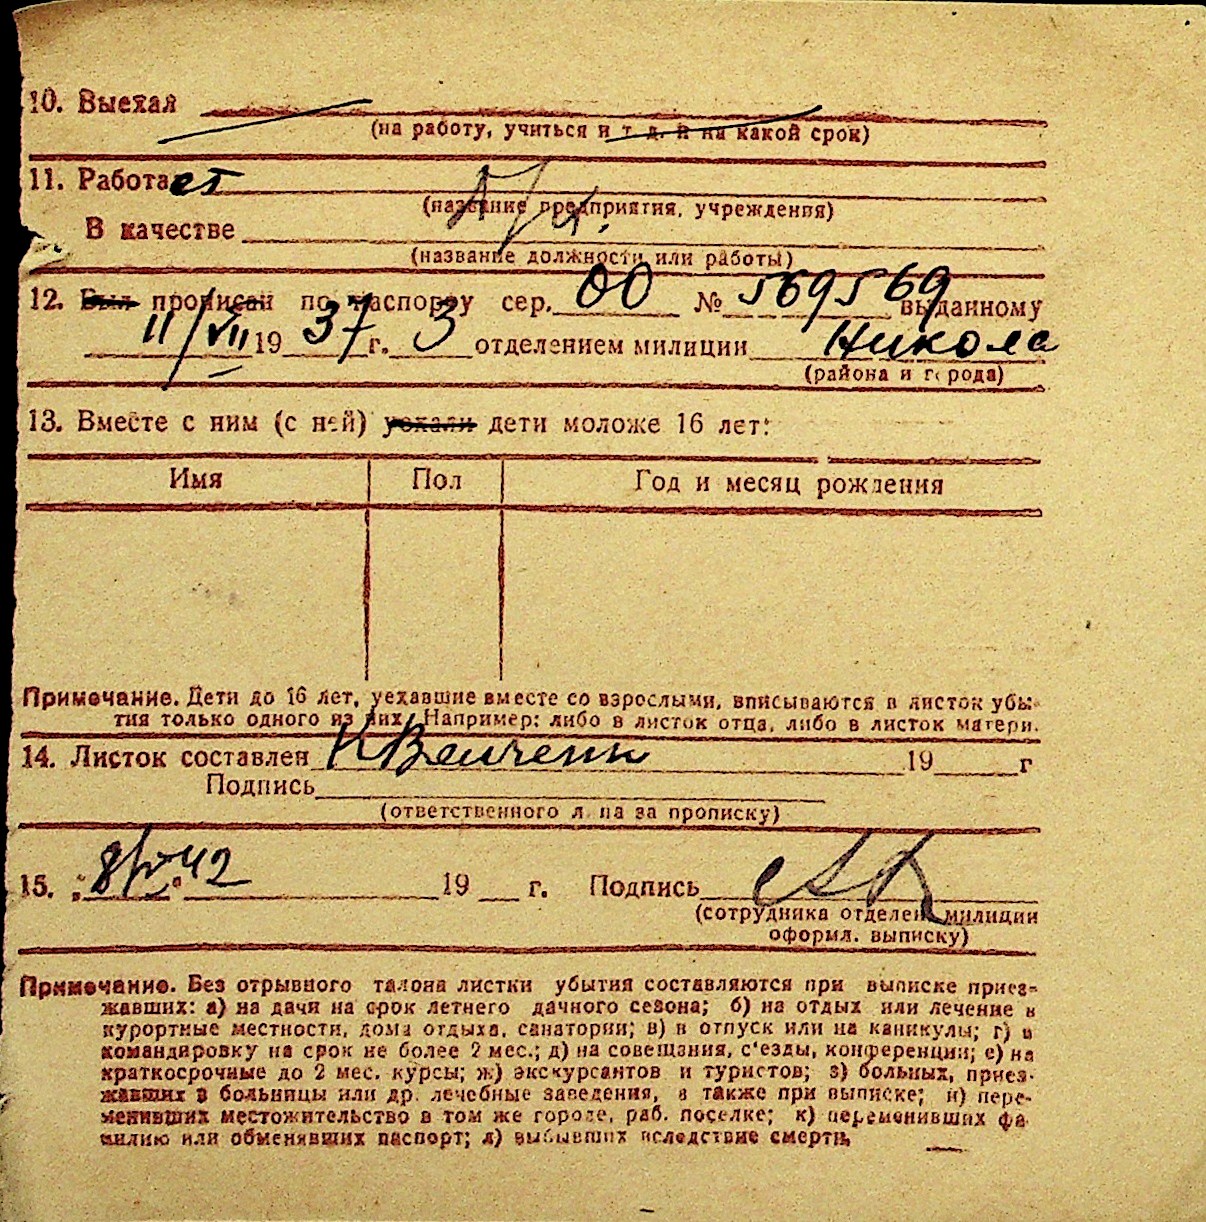 10. Выехал
(на работу, учиться и т. д. и на какой срок)
11. Работает
(название предприятия, учреждения)
В качестве
(название должности или работы)
12. Был прописан по паспорту сер. 00 № 569569 выданному
11/VII 19 37 г. 3 отделением милиции Никола
(района и города)
13. Вместе с ним (с ней) уехали дети моложе 16 лет:
Имя Пол Год и месяц рождения
Примечание. Дети до 16 лет, уехавшие вместе со взрослыми, вписываются в листок убы-
тия только одного из них. Например: либо в листок отца, либо в листок матери.
14. Листок составлен 19 г
Подпись
(ответственного лица за прописку)
15. „8/V“ 42 19 г. Подпись
(сотрудника отделен. милиции
оформл. выписку)
Примечание. Без отрывного талона листки убытия составляются при выписке приез-
жавших: а) на дачи на срок летнего дачного сезона; б) на отдых или лечение в
курортные местности, дома отдыха, санатории; в) в отпуск или на каникулы; г) в
командировку на срок не более 2 мес.; д) на совещания, с'езды, конференции; е) на
краткосрочные до 2 мес. курсы; ж) экскурсантов и туристов; з) больных, приез-
жавших в больницы или др. лечебные заведения, а также при выписке; и) пере-
менивших местожительство в том же городе, раб. поселке; к) переменивших фа-
милию или обменявших паспорт; л) выбывших вследствие смерти.